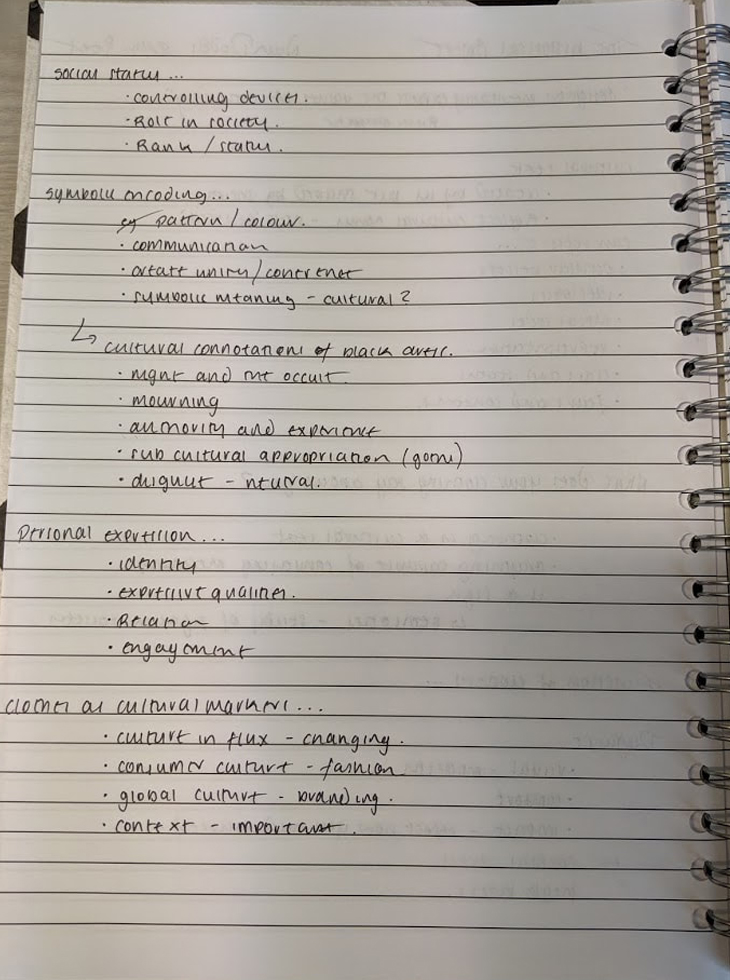 social status...
· controlling devices.
· Role in society.
· Rank / status.
symbolic encoding...
pattern / colour.
· communication
· unity /
· symbolic meaning - cultural?
↳ cultural connotations of black
· night and the occult.
· mourning
· authority and experience
· sub cultural appropriation (goths)
· - neutral.
Personal expression...
· identity
· expressive qualities.
· Relation
· engagement
clothes as cultural markers...
· culture in flux - changing.
· consumer culture - fashion
· global culture - branding.
· context - important.